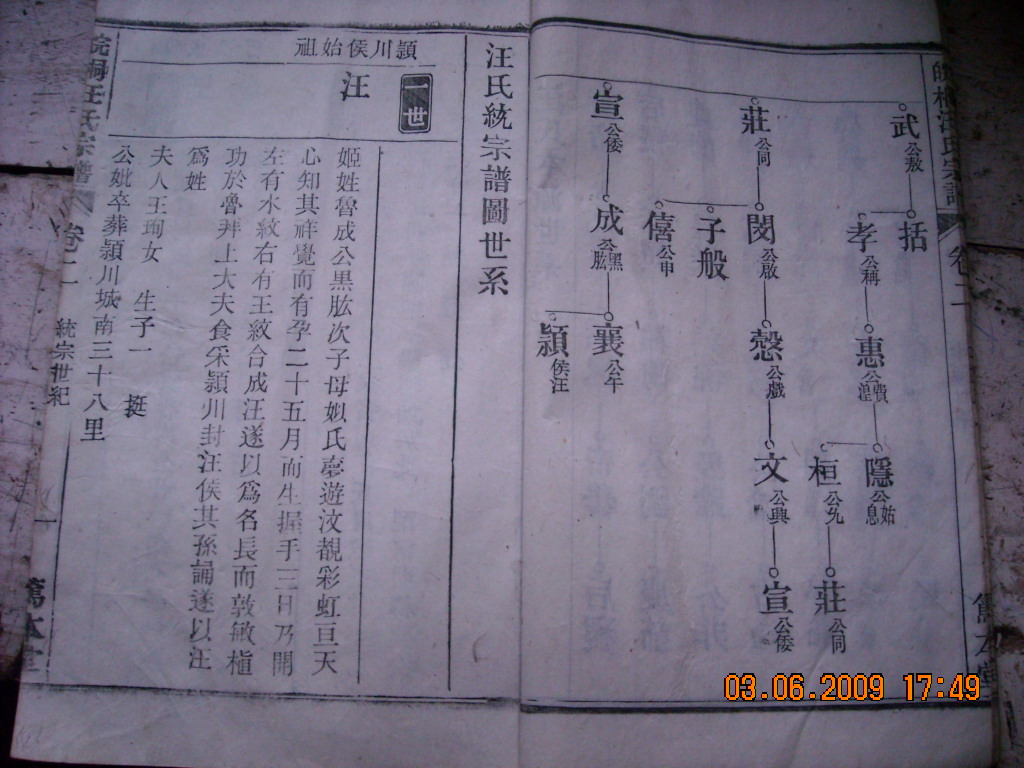 武公敖
括
孝公稱
惠公弗湟
隱公息姑
桓公允
莊公同
莊公同
閔公啟
子般
僖公申
文公興
宣公倭
宣公倭
成公黑肱
襄公午
潁侯汪
卷二
汪氏統宗譜圖世系
潁川侯始祖
一世
汪
姬姓魯成公黑肱次子母姒氏夢遊汶覩彩虹亘天
心知其祥覺而有孕二十五月而生握手三日乃開
左有水紋右有王紋合成汪遂以爲名長而敦敏植
功於魯拜上大夫食宋潁川封汪侯其孫誦遂以汪
爲姓
夫人王珣女 生子一 挺
公妣卒葬潁川城南三十八里
皖桐汪氏宗譜
卷二
統宗世紀
一
篤本堂
03.06.2009 17:49